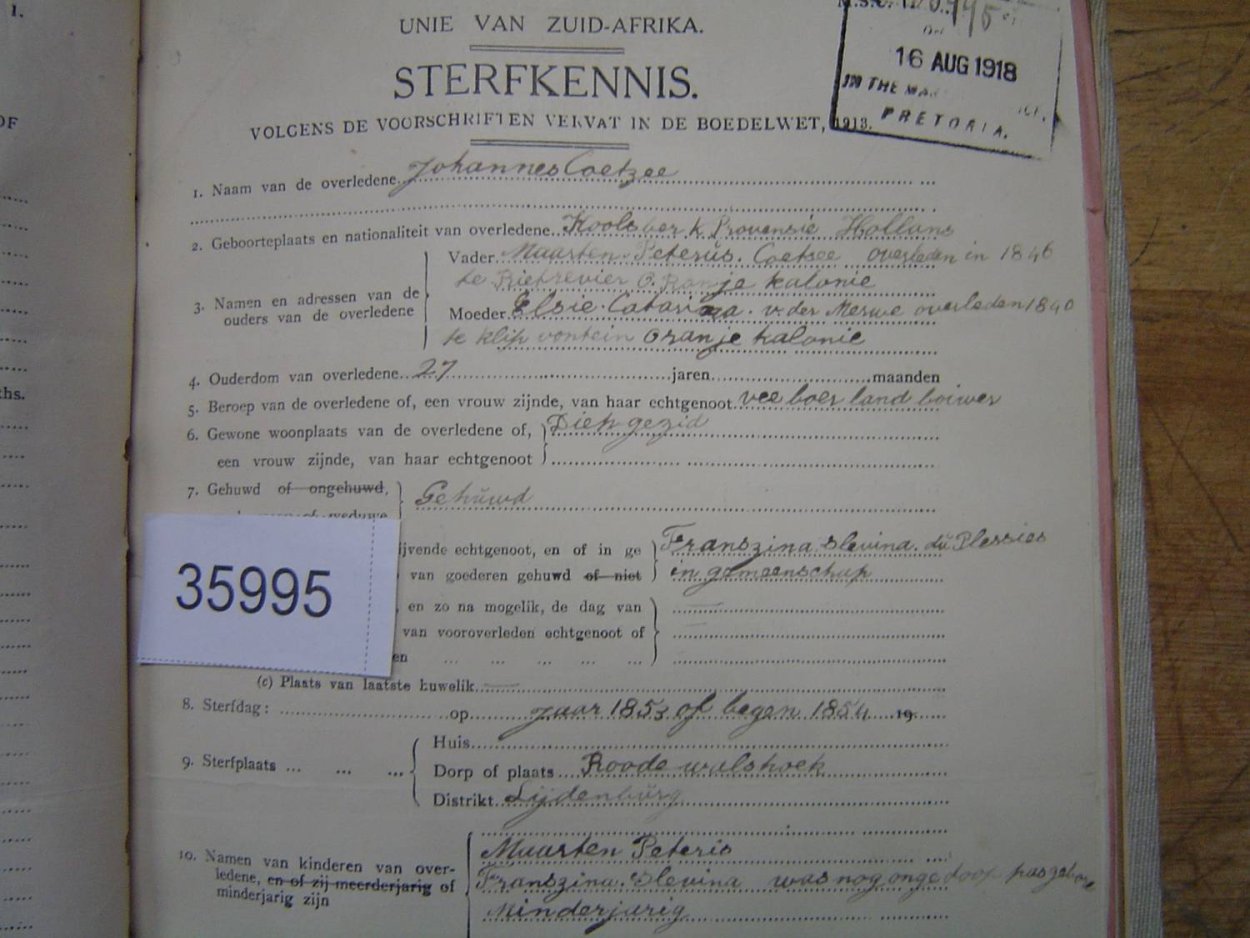 1.
OF
ths.
UNIE VAN ZUID-AFRIKA.
16 AUG 1918
IN THE
PRETORIA.
STERFKENNIS.
VOLGENS DE VOORSCHRIFTEN VERVAT IN DE BOEDELWET, 1913.
1. Naam van de overledene Johannes Coetzee
2. Geboorteplaats en nationaliteit van overledene Koolsberk Provensie Hollans
Vader Maarten Peterüs. Coetsee overleden in 1846
te Rietrevier O. Ranje kalonie
3. Namen en adressen van de
ouders van de overledene
Moeder Elsie. Catarina. v. der Merwe overleden 1840
te klip vontein oranje kalonie
4. Ouderdom van overledene 27 jaren maanden
5. Beroep van de overledene of, een vrouw zijnde, van haar echtgenoot vee boer land bouwer
6. Gewone woonplaats van de overledene of,
een vrouw zijnde, van haar echtgenoot
7. Gehuwd of ongehuwd, Gehüwd
of weduwe
35995
ijvende echtgenoot, en of in ge Franszina Slevina. dü Plessies
van goederen gehuwd of niet in gemeenschap
, en zo na mogelik, de dag van
van vooroverleden echtgenoot of
en
(c) Plaats van laatste huwelik
8. Sterfdag: op jaar 1853 of begen 1854 19
Huis
9. Sterfplaats Dorp of plaats Roode walshoek
Distrikt Lijdenbürg
10. Namen van kinderen van over-
ledene, en of zij meerderjarig of
minderjarig zijn
Maarten Peteris
Franszina. Slevina was nog ongedoop
Minderjarig